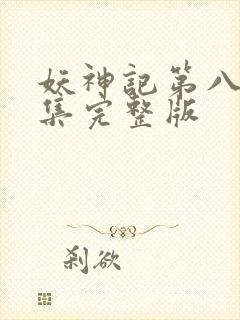 妖神記第八
集完整版
剎欲